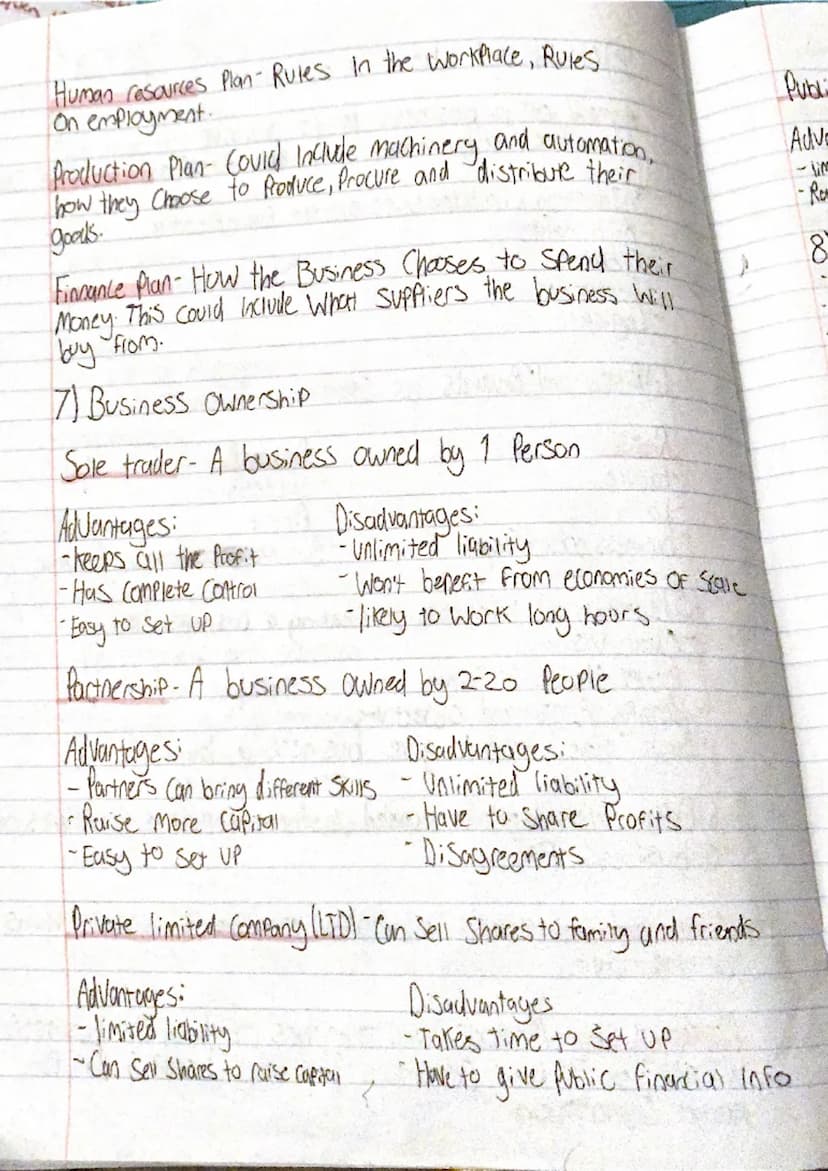 Human resources Plan- Rules in the workplace, Rules
on employment.
Production Plan- Could include machinery and automation,
how they choose to produce, procure and distribute their
goods.
Finnance Plan- How the Business Chooses to spend their
money. This could include what suppliers the business will
buy from.
7) Business ownership
Sole trader- A business owned by 1 Person
Advantages:
-keeps all the Profit
-Has complete control
-Easy to set up
Disadvantages:
-Unlimited liability
-Won't benefit from economies of scale
-likely to work long hours
Partnership- A business owned by 2-20 People
Advantages:
- Partners can bring different skills
- Raise more capital
-Easy to set up
Disadvantages:
- Unlimited liability
- Have to share Profits
- Disagreements
Private limited company (LTD) - Can sell shares to family and friends
Advantages:
- limited liability
- Can sell shares to raise capital
Disadvantages
- Takes time to set up
- Have to give public financial info
8)